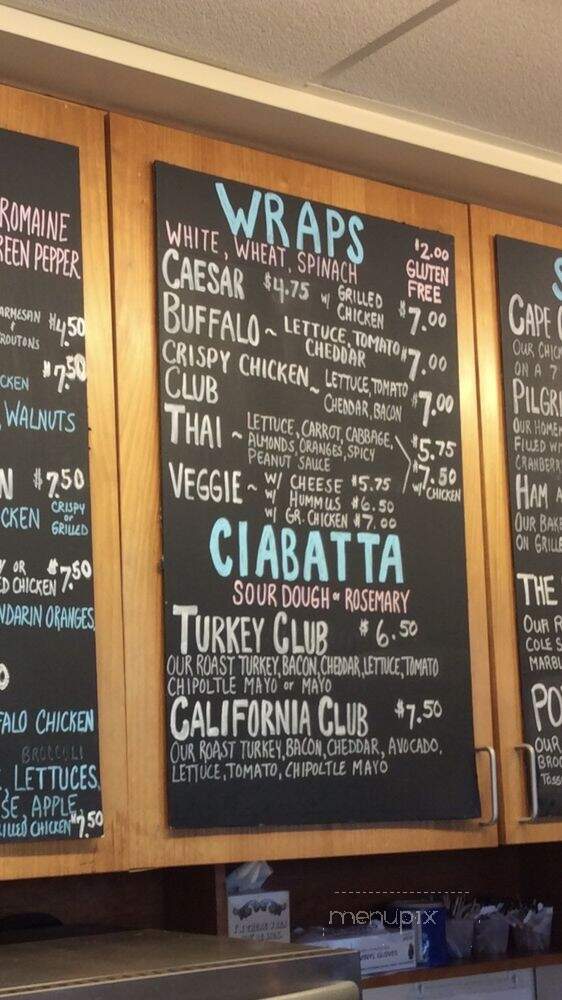 ROMAINE
REEN PEPPER
ARMESAN $4.50
ROUTONS
CKEN $7.50
WALNUTS
N $7.50
CKEN CRISPY
or
GRILLED
OR
ED CHICKEN $7.50
NDARIN ORANGES,
0
FALO CHICKEN
BROCCOLI
, LETTUCES,
SE, APPLE,
ILLED CHICKEN $7.50
WRAPS
WHITE, WHEAT, SPINACH
$2.00
GLUTEN
FREE
CAESAR $4.75 W/ GRILLED
CHICKEN $7.00
BUFFALO ~ LETTUCE, TOMATO
CHEDDAR $7.00
CRISPY CHICKEN ~ LETTUCE, TOMATO
CLUB CHEDAR, BACON $7.00
THAI ~ LETTUCE, CARROT, CABBAGE,
ALMONDS, ORANGES, SPICY
PEANUT SAUCE
$5.75
$7.50
W/ CHICKEN
VEGGIE ~ W/ CHEESE $5.75
W/ HUMMUS $6.50
W/ GR. CHICKEN $7.00
CIABATTA
SOUR DOUGH or ROSEMARY
TURKEY CLUB $6.50
OUR ROAST TURKEY, BACON, CHEDDAR, LETTUCE, TOMATO
CHIPOLTLE MAYO or MAYO
CALIFORNIA CLUB $7.50
OUR ROAST TURKEY, BACON, CHEDDAR, AVOCADO,
LETTUCE, TOMATO, CHIPOLTLE MAYO
S
CAPE
OUR CHIC
ON A 7
PILGRI
OUR HOME
FILLED W
CRANBERR
HAM
OUR BAKE
ON GRILLE
THE
OUR R
COLE S
MARBL
PO
OUR
BROC
TOSS
menupix
VINYL GLOVES